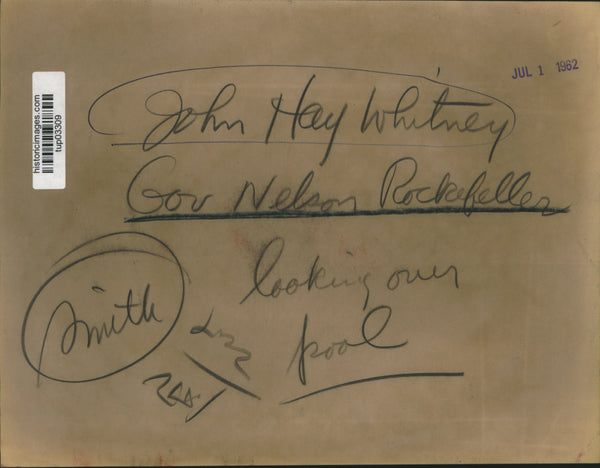 JUL 1 1962
historicimages.com
tup03309
John Hay Whitney
Gov Nelson Rockefeller
looking over
pool
Smith